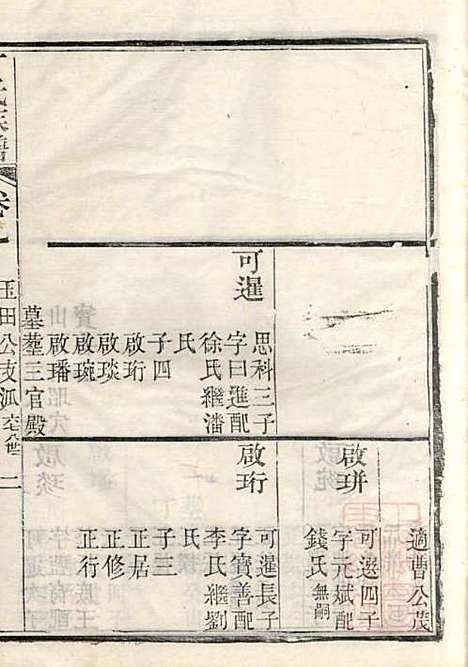 可暹
思科三子
字曰進配
徐氏繼潘
氏
子四
啟珩
啟琰
啟琬
啟璠
墓葬三官殿
適曹公茂
啟琲
可遴四子
字元斌配
錢氏無嗣
啟珩
可暹長子
字寶善配
李氏繼劉
氏
子三
正居
正修
正行
玉田公支派
二